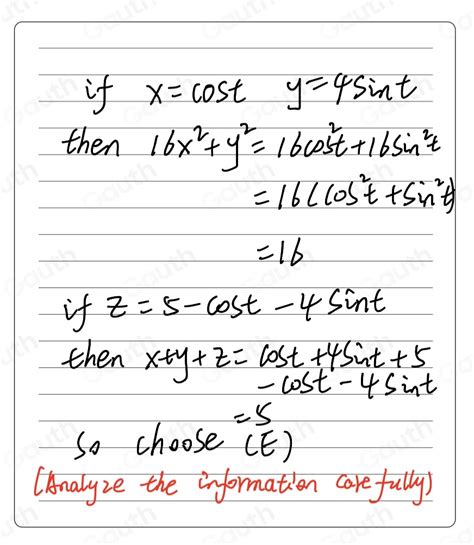 if x=cost y=4sint
then 16x²+y²=16cos²t+16sin²t
=16(cos²t+sin²t)
=16
if z=5-cost-4sint
then x+y+z=cost+4sint+5
-cost-4sint
=5
So choose (E)
(Analyze the information carefully)